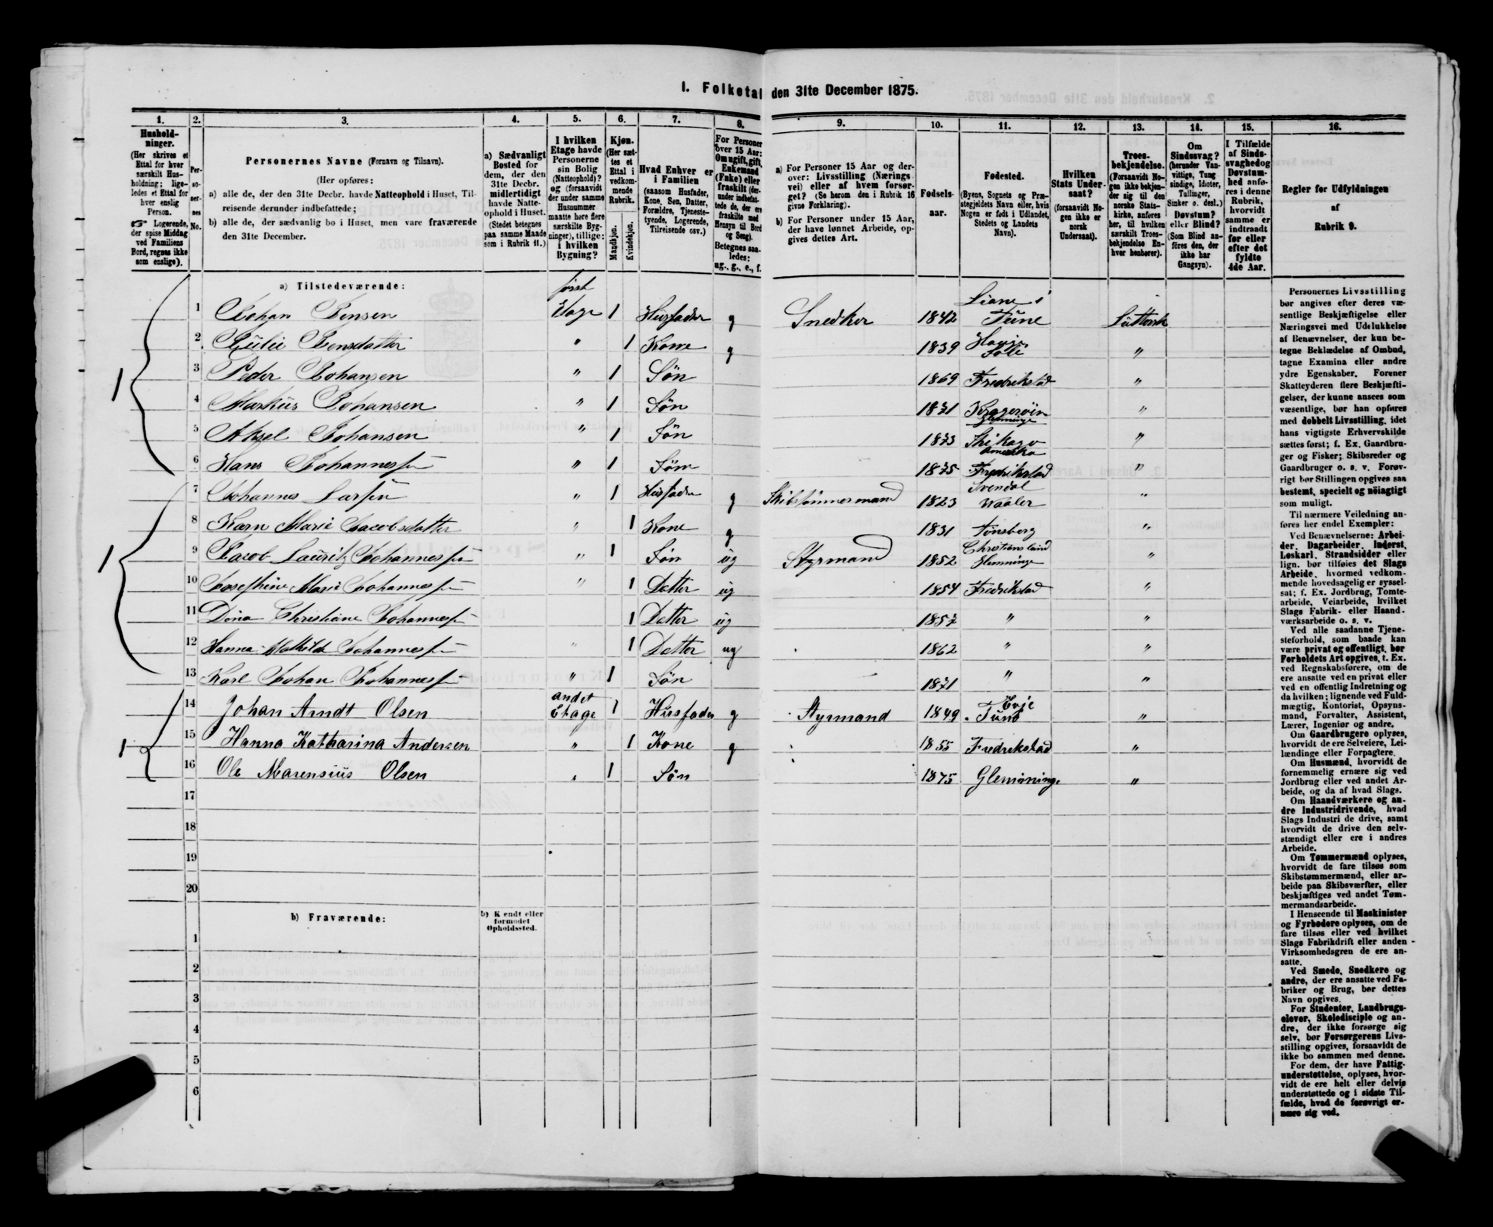 1. Folketal den 31te December 1875.
1. 2. 3. 4. 5. 6. 7. 8. 9. 10. 11. 12. 13. 14. 15. 16.
Hushold-
ninger.
(Her skrives et
Ettal for hver
særskilt Hus-
holdning; lige-
ledes et Ettal for
hver enslig
Person.
☞ Logerende,
der spise Middag
ved Familiens
Bord, regnes ikke
som enslige).
Per-
so-
ner-
nes
No.
Personernes Navne (Fornavn og Tilnavn).
(Her opføres:
a) alle de, der den 31te Decbr. havde Natteophold i Huset, Til-
reisende derunder indbefattede;
b) alle de, der sædvanlig bo i Huset, men vare fraværende
den 31te December.
a) Sædvanligt
Bosted for
dem, der den
31te Decbr.
midlertidigt
havde Natte-
ophold i Huset.
(Stedet betegnes
paa samme Maade
som i Rubrik 11.)
I hvilken
Etage havde
Personerne
sin Bolig
(Natteophold)?
og (forsaavidt
der under samme
Husnummer
maatte høre flere
særskilte Byg-
ninger), tillige:
i hvilken
Bygning?
Kjøn.
(Her sæt-
tes et
Ettal i
vedkom-
mende
Rubrik.
Mandkjøn.
Kvindekjøn.
Hvad Enhver er
i Familien
(saasom Husfader,
Kone, Søn, Datter,
Forældre, Tjeneste-
tyende, Logerende,
Tilreisende osv.)
For Personer
over 15 Aar:
Om ugift, gift,
Enkemand
(Enke) eller
fraskilt (der-
under indbefat-
tede de, der ere
fraskilte med
Hensyn til Bord
og Seng).
Betegnes saa-
ledes:
ug., g., e., f.
a) For Personer 15 Aar og der-
over: Livsstilling (Nærings-
vei) eller af hvem forsør-
get? (Se herom den i Rubrik 16
givne Forklaring).
b) For Personer under 15 Aar,
der have lønnet Arbeide, op-
gives dettes Art.
Fødsels-
aar.
Fødested.
(Byens, Sognets og Præ-
stegjeldets Navn eller, hvis
Nogen er født i Udlandet,
Stedets og Landets
Navn).
Hvilken
Stats Under-
saat?
(forsaavidt No-
gen ikke er
norsk
Undersaat).
Troes-
bekjendelse.
(Forsaavidt No-
gen ikke bekjen-
der sig til den
norske Stats-
kirke, anføres
her, til hvilken
særskilt Troes-
bekjendelse En-
hver henhører).
Om
Sindssvag?
(herunder Van-
vittige, Tung-
sindige, Idioter,
Tullinger,
Sinker o. desl.)
Døvstum?
eller Blind?
(Som Blind an-
føres den, der
ikke har
Gangsyn).
I Tilfælde
af Sinds-
svaghed og
Døvstum-
hed anfø-
res i denne
Rubrik,
hvorvidt
samme er
indtraadt
før eller
efter det
fyldte
4de Aar.
Regler for Udfyldningen
af
Rubrik 9.
a) Tilstedeværende:
1 Johan Jensen først Etage 1 Husfader g Snedker 1842 Tune Luthersk
2 Jensdatter " 1 Kone g 1839 "
1 3 Peder Johansen " 1 Søn 1869 Fredrikstad "
4 Markus Johansen " 1 Søn 1871 "
5 Aksel Johansen " 1 Søn 1873 Amerika "
6 Hans Johannes " 1 Søn 1875 Fredrikstad "
7 Johannes Larsen " 1 Husfader g Skibstømmermand 1823 Svendal Waaler "
8 Karn Marie Jacobsdatter " 1 Kone g 1831 Tønsberg "
1 9 Jacob Lauritz Johannes " 1 Søn ug Styrmand 1852 Christianslund Glemminge "
10 Josephine Marie Johannes " 1 Datter ug 1854 Fredrikstad "
11 Dina Christiane Johannes 1 Datter ug 1857 " "
12 Hanna Mathilde Johannes " 1 Datter ug 1862 " "
13 Karl Johan Johannes " 1 Søn 1871 " "
14 Johan Arndt Olsen andet Etage 1 Husfader g Styrmand 1849 Tune "
1 15 Hanna Katharina Andersen " 1 Kone g 1855 Fredrikstad "
16 Ole Marensius Olsen " 1 Søn 1875 Glemminge "
17
18
19
20
b) Fraværende:
b) Kjendt eller
formodet
Opholdssted.
1
2
3
4
5
6
Personernes Livsstilling
bør angives efter deres væ-
sentlige Beskjæftigelse eller
Næringsvei med Udelukkelse
af Benævnelser, der kun be-
tegne Beklædelse af Ombud,
tagne Examina eller andre
ydre Egenskaber. Forener
Skatteyderen flere Beskjæfti-
gelser, der kunne ansees som
væsentlige, bør han opføres
med dobbelt Livsstilling, idet
hans vigtigste Erhvervskilde
sættes først; f. Ex. Gaardbru-
ger og Fisker; Skibsreder og
Gaardbruger o. s. v. Forøv-
rigt bør Stillingen opgives saa
bestemt, specielt og nøiagtigt
som muligt.
Til nærmere Veiledning an-
føres her endel Exempler:
Ved Benævnelserne: Arbei-
der, Dagarbeider, Inderst,
Løskarl, Strandsidder eller
lign. bør tilføies det Slags
Arbeide, hvormed vedkom-
mende hovedsagelig er syssel-
sat; f. Ex. Jordbrug, Tomte-
arbeide, Veiarbeide, hvilket
Slags Fabrik- eller Haand-
værksarbeide o. s. v.
Ved alle saadanne Tjene-
steforhold, som baade kan
være privat og offentligt, bør
Forholdets Art opgives, f. Ex.
ved Regnskabsførere, om de
ere ansatte ved en privat eller
ved en offentlig Indretning og
da hvilken; lignende ved Fuld-
mægtig, Kontorist, Opsyns-
mand, Forvalter, Assistent,
Lærer, Ingeniør og andre.
Om Gaardbrugere oplyses,
hvorvidt de ere Selveiere, Lei-
lændinge eller Forpagtere.
Om Husmænd, hvorvidt de
fornemmelig ernære sig ved
Jordbrug eller ved andet Ar-
beide, og da af hvad Slags.
Om Haandværkere og an-
dre Industridrivende, hvad
Slags Industri de drive, samt
hvorvidt de drive den selv-
stændigt eller ere i andres
Arbeide.
Om Tømmermænd oplyses,
hvorvidt de fare tilsøs som
Skibstømmermænd, eller ar-
beide paa Skibsværfter, eller
beskjæftiges ved andet Tøm-
mermandsarbeide.
I Henseende til Maskinister
og Fyrbødere oplyses, om de
fare tilsøs eller ved hvilket
Slags Fabrikdrift eller anden
Virksomhedsgren de ere an-
satte.
Ved Smede, Snedkere og
andre, der ere ansatte ved Fa-
briker og Brug, bør dettes
Navn opgives.
For Studenter, Landbrugs-
elever, Skoledisciple og an-
dre, der ikke forsørge sig
selv, bør Forsørgerens Livs-
stilling opgives, forsaavidt de
ikke bo sammen med denne.
For dem, der have Fattig-
understøttelse, oplyses, hvor-
vidt de ere helt eller delvis
understøttede og i sidste Til-
fælde, hvad de forøvrigt er-
nære sig ved.